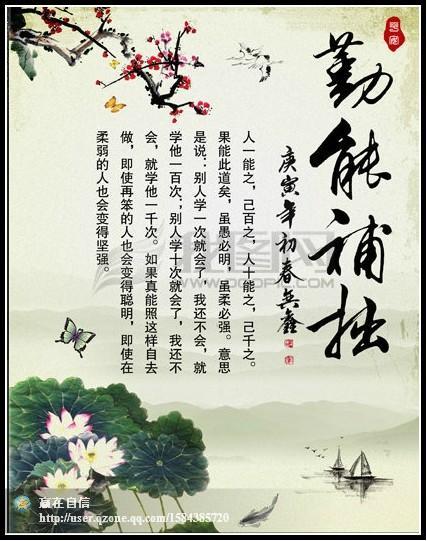 勤能补拙
庚寅年初春兵鑫
人一能之，己百之，人十能之，己千之。
果能此道矣，虽愚必明，虽柔必强。意思
是说：别人学一次就会了，我还不会，就
学他一百次；别人学十次就会了，我还不
会，就学他一千次。如果真能照这样自去
做，即使再笨的人也会变得聪明，即使在
柔弱的人也会变得坚强。
赢在自信
http://user.qzone.qq.com/1584385720